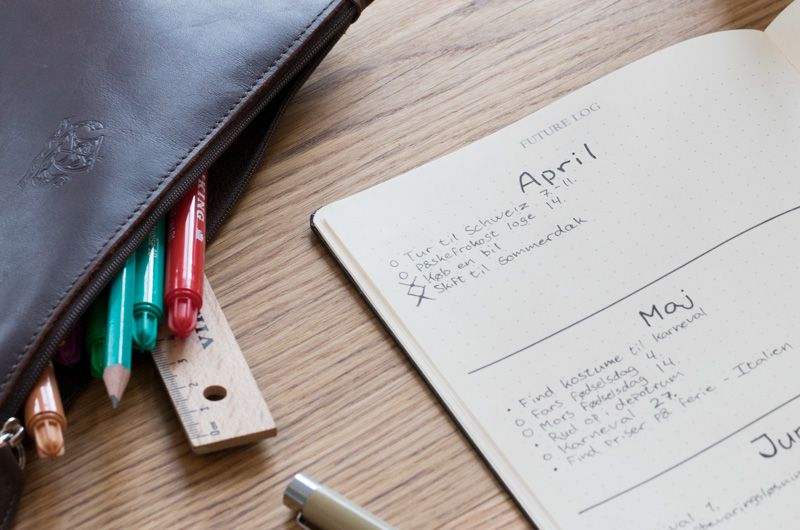 FUTURE LOG
April
Tur til Schweiz 7.-11.
Påskefrokost loge 14.
Køb en bil
Skift til sommerdæk
Maj
Find kostume til karneval
Fars fødselsdag 4.
Mors fødselsdag 14.
Ryd op i depotrum
Karneval 27.
Find priser på ferie - Italien
Jun
KING
VI
0
1
2